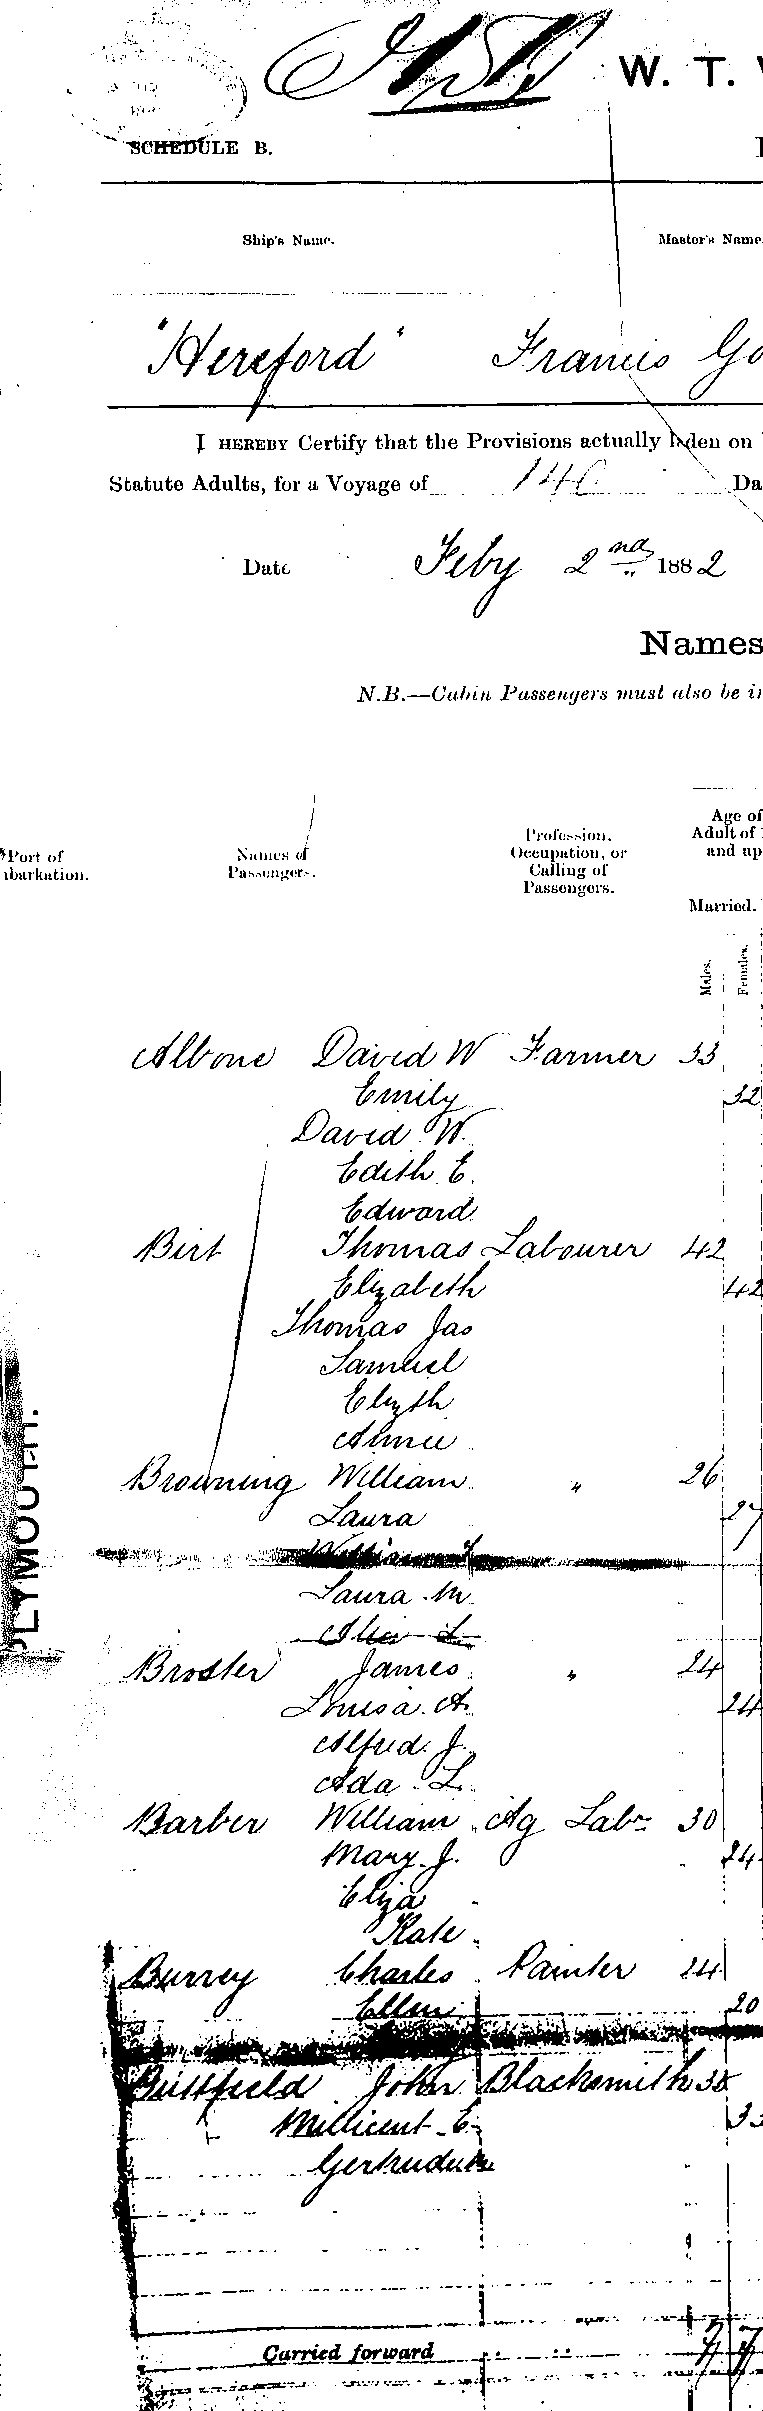 W. T.
SCHEDULE B.
Ship's Name. Master's Name
"Hereford" Francis Go
I HEREBY Certify that the Provisions actually laden on
Statute Adults, for a Voyage of 140 Da
Date Feby 2nd 1882
Names
N.B.—Cabin Passengers must also be in
Port of
mbarkation.
Names of
Passengers.
Profession,
Occupation, or
Calling of
Passengers.
Age of
Adult of
and up
Married.
Males.
Females.
PLYMOUTH.
Albone David W Farmer 33
Emily 32
David W.
Edith E.
Edward
Birt Thomas Labourer 42
Elizabeth 42
Thomas Jas
Samuel
Elizth
Annie
Browning William " 26
Laura 27
William
Laura M
Alice L
Broster James " 24
Louisa A. 24
Alfred J.
Ada L.
Barber William Ag Labr 30
Mary J. 24
Eliza
Kate
Burrey Charles Painter 24
Ellen 20
Buttfield John Blacksmith 38
Millicent E. 3
Gertrude
Carried forward .. .. 7 7